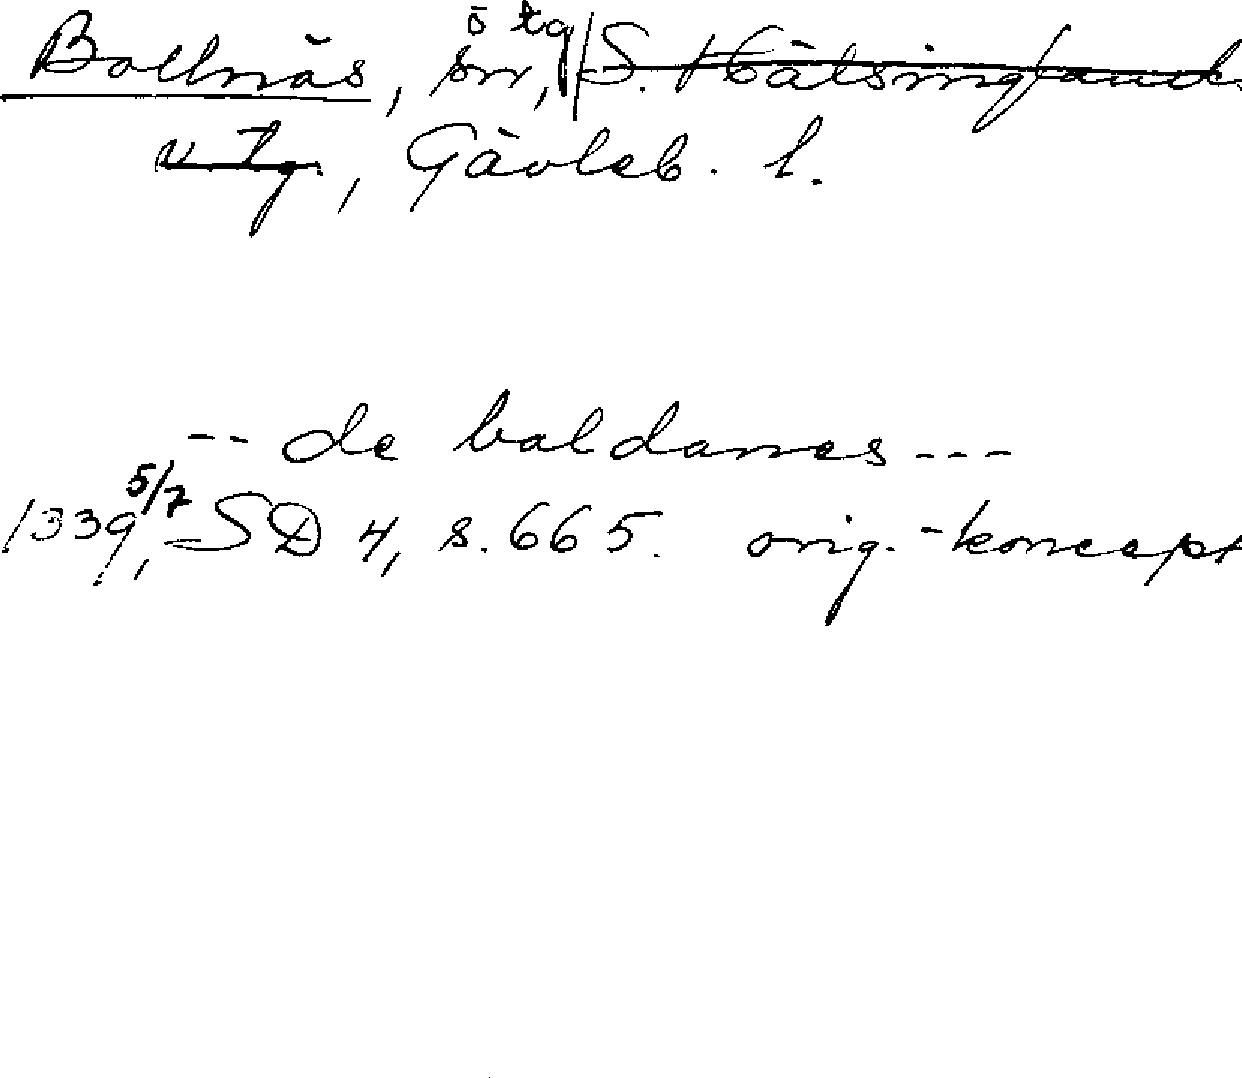 Bollnäs, sn, ö tg S. Hälsinglands
v. tg, Gävleb. l.
-- de baldanes ---
1339 5/7, SD 4, s. 665. orig.-koncept